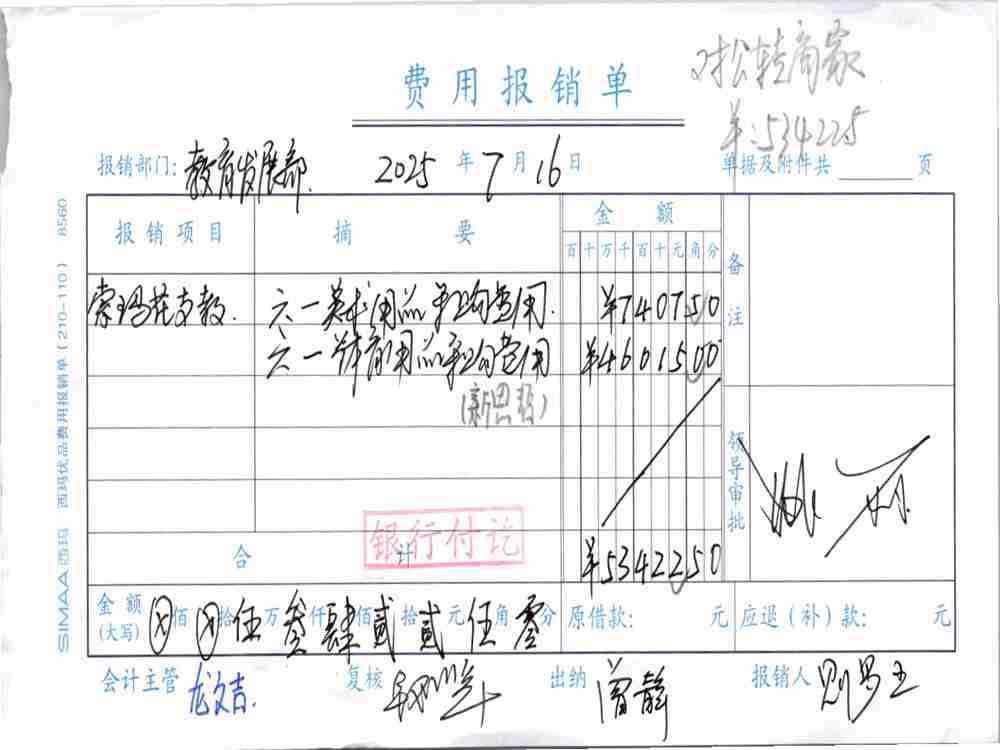 对松转商家
¥:534225
费用报销单
报销部门: 教育发展部. 2025年7月16日 单据及附件共 页
报销项目 摘要 金额 备注
百十万千百十元角分
索玛花支教. 六一美术用品采购费用. ¥740750
六一体育用品采购费用 ¥4601500
(新思教)
领导审批
银行付讫
合计 ¥5342250
金额(大写) ⊗佰⊗拾伍万叁仟肆佰贰拾贰元伍角零分 原借款: 元 应退(补)款: 元
会计主管 龙文吉. 复核 出纳 曾静 报销人
SIMAA 西玛 西玛优品费用报销单(210-110) 8560